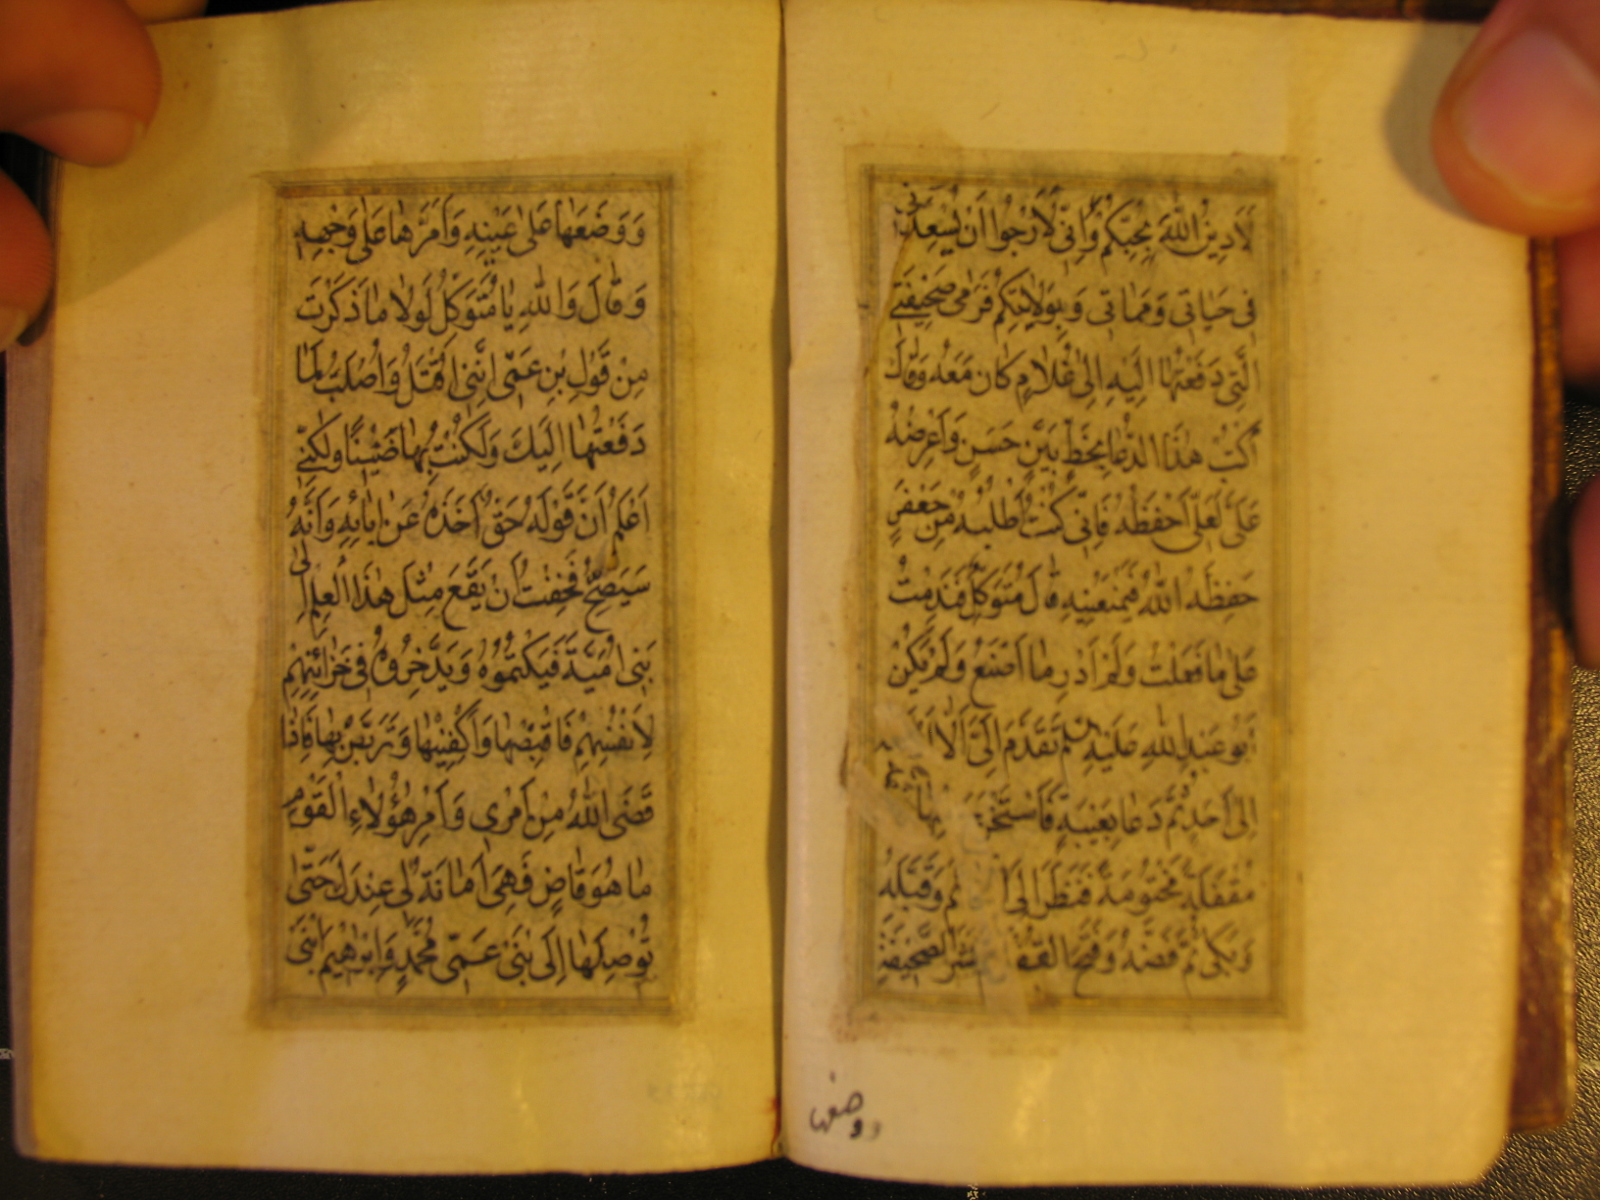 لَادِينُ اللهَ بِحُبِّكُمْ وَاِنّى لَاَرْجُوا اَنْ يُسْعِدَنى
فى حَيَاتى وَمَمَاتى وَبِوَلَايَتِكُمْ فَرَمى صَحِيفَتى
الَّتى دَفَعْتُهَا اِلَيْهِ اِلى غُلَامٍ كَانَ مَعَهُ وَقَالَ
اُكْتُبْ هذَا الدُّعَا بِخَطٍّ بَيِّنٍ حَسَنٍ وَاعْرِضْهُ
عَلَىَّ لَعَلّى اَحْفَظُهُ فَاِنّى كُنْتُ اَطْلُبُهُ مِنْ جَعْفَرٍ
حَفِظَهُ اللهُ فَيَمْنَعُنِيهِ قَالَ مُتَوَكِّلٌ فَنَدِمْتُ
عَلى مَا فَعَلْتُ وَلَمْ اَدْرِ مَا اَصْنَعُ وَلَمْ يَكُنْ
اَبُو عَبْدِ اللهِ عَلَيْهِ تَقَدَّمَ اِلَىَّ اَلَّا
اِلى اَحَدٍ ثُمَّ دَعَا بِعَيْبَةٍ فَاسْتَخْرَجَ
مُقْفَلَةً مَخْتُومَةً فَنَظَرَ اِلَى وَقَبَّلَهُ
وَبَكى ثُمَّ فَضَّهُ وَفَتَحَ القُفْلَ نَشَرَ الصَّحِيفَةَ
ووضعها
وَوَضَعَهَا عَلى عَيْنِهِ وَاَمَرَّهَا عَلى وَجْهِهِ
وَقَالَ وَاللهِ يَا مُتَوَكِّلُ لَوْلَا مَا ذَكَرْتَ
مِنْ قَوْلِ بْنِ عَمّى اِنَّنى اُقْتَلُ وَاُصْلَبُ لَمَا
دَفَعْتُهَا اِلَيْكَ وَلَكُنْتُ بِهَا ضَنِينًا وَلكِنّى
اَعْلَمُ اَنَّ قَوْلَهُ حَقٌّ اَخَذَهُ عَنْ ابَائِهِ وَاَنَّهُ
سَيَصِحُّ فَخِفْتُ اَنْ يَقَعَ مِثْلُ هذَا الْعِلْمِ اِلى
بَنى اُمَيَّةَ فَيَكْتُمُوهُ وَيَدَّخِرُوهُ فى خَزَائِنِهِمْ
لِاَنْفُسِهِمْ فَاقْبِضْهَا وَاكْفِنِيهَا وَتَرَبَّصْ بِهَا فَاِذَا
قَضَى اللهُ مِنْ اَمْرى وَاَمْرِ هؤُلَاءِ الْقَوْمِ
مَا هُوَ قَاضٍ فَهِىَ اَمَانَةٌ لى عِنْدَكَ حَتّى
تُوصِلَهَا اِلَى بَنى عَمّى مُحَمَّدٍ وَاِبْرهِيمَ ابْنَىْ